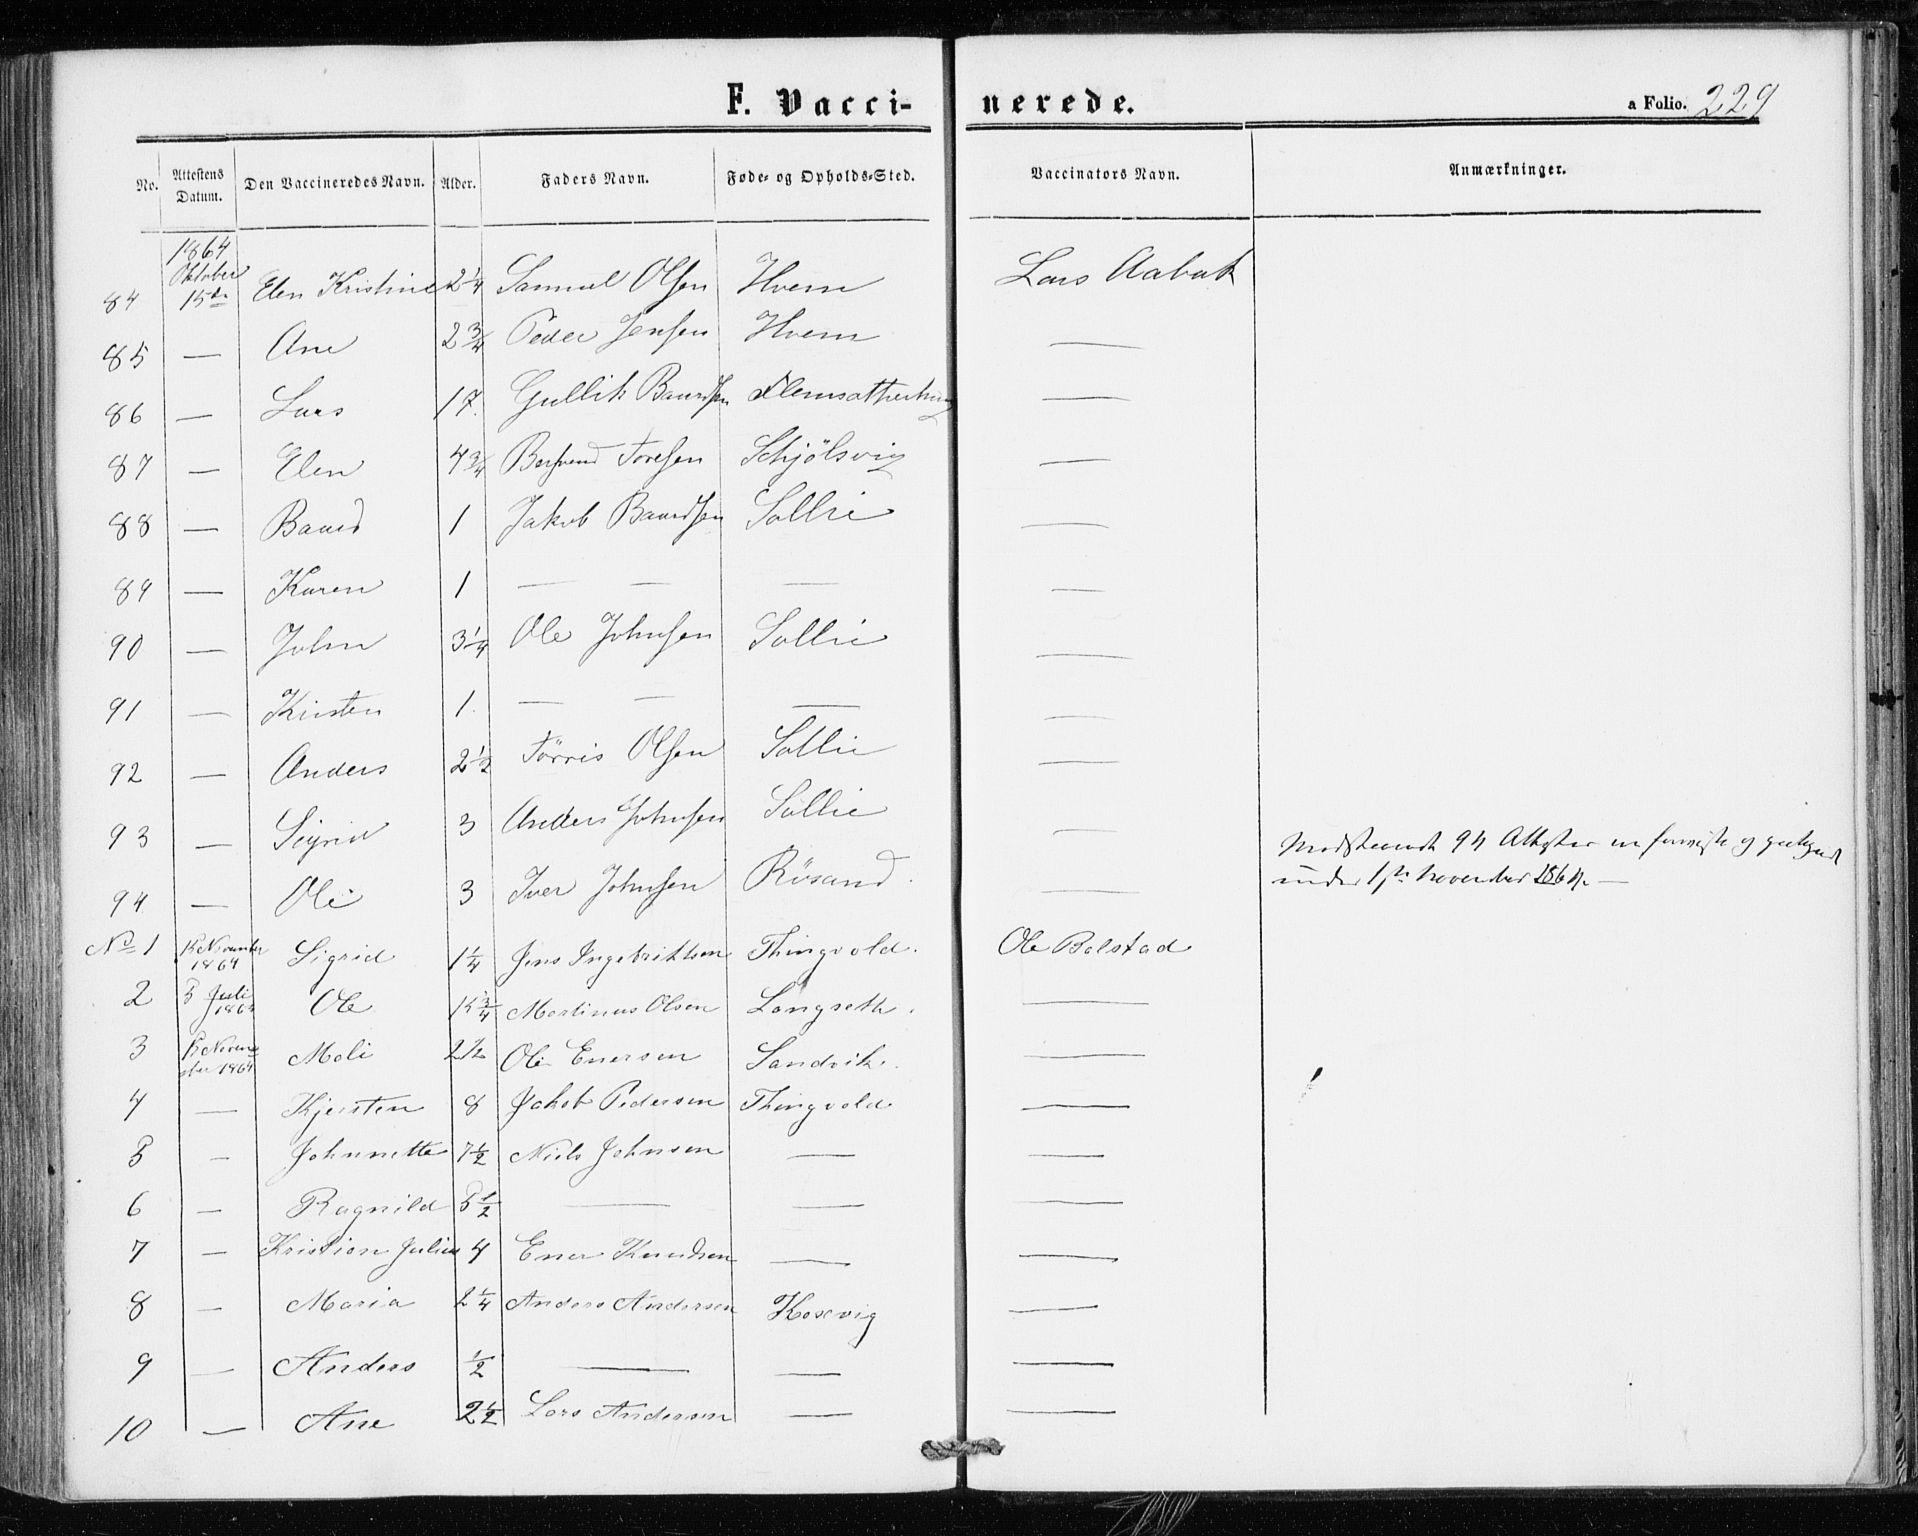 F. Vaccinerede.
a Folio. 229
No. Attestens Datum. Den Vaccineredes Navn. Alder. Faders Navn. Føde- og Opholds-Sted. Vaccinators Navn. Anmærkninger.
1864
Oktober
84 15de Elen Kristine 2 1/4 Samuel Olsen Hvem Lars Aabak
85 — Ane 2 3/4 Peder Jensen Hvem —
86 — Lars 17. Gullik Baardsen —
87 — Elen 4 3/4 Toresen Schjölsvig —
88 — Baard 1 Jakob Baardsen Sollie —
89 — Karen 1 — — — —
90 — John 3 1/4 Ole Johnsen Sollie —
91 — Kirsten 1. — — — —
92 — Anders 2 1/2 Törris Olsen Sollie —
93 — Sigrid 3 Anders Johnsen Sollie —
94 — Ole 3 Iver Johnsen Rösand. —
94 Attester
under November 1864. —
No 1 November 1864 Sigrid 1 1/4 Jens Ingebriktsen Thingvold. Ole Bolstad
2 5 Juli 1864 Ole 3/4 Martinus Olsen Langseth. —
3 November 1864 Mali 2 1/2 Ole Enersen Sandvik. —
4 — Kjersten 8 Jakob Pedersen Thingvold —
5 — Johnnette 7 1/2 Niels Johnsen — —
6 — Ragnild 5 1/2 — — —
7 — Kristian Julius 4 Ener Knudsen — —
8 — Maria 2 1/4 Anders Andersen Kosevig —
9 — Anders 1/2 — — —
10 — Ane 2 1/2 Lars Andersen — —